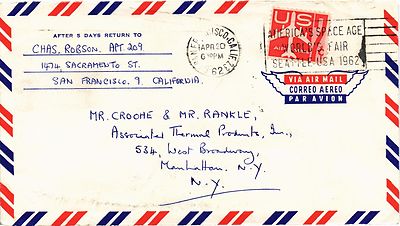 AFTER 5 DAYS RETURN TO
CHAS. ROBSON. APT 209
1474 SACRAMENTO ST.
SAN FRANCISCO. 9. CALIFORNIA.
CALIF.
APR 20
PM
1962
US
AIR
AMERICA'S SPACE AGE
WORLD'S FAIR
SEATTLE USA 1962
VIA AIR MAIL
CORREO AEREO
PAR AVION
MR. CROOHE & MR. RANKLE,
Associated Thermal Products, Inc.,
534, West Broadway,
Manhattan, N.Y.
N.Y.